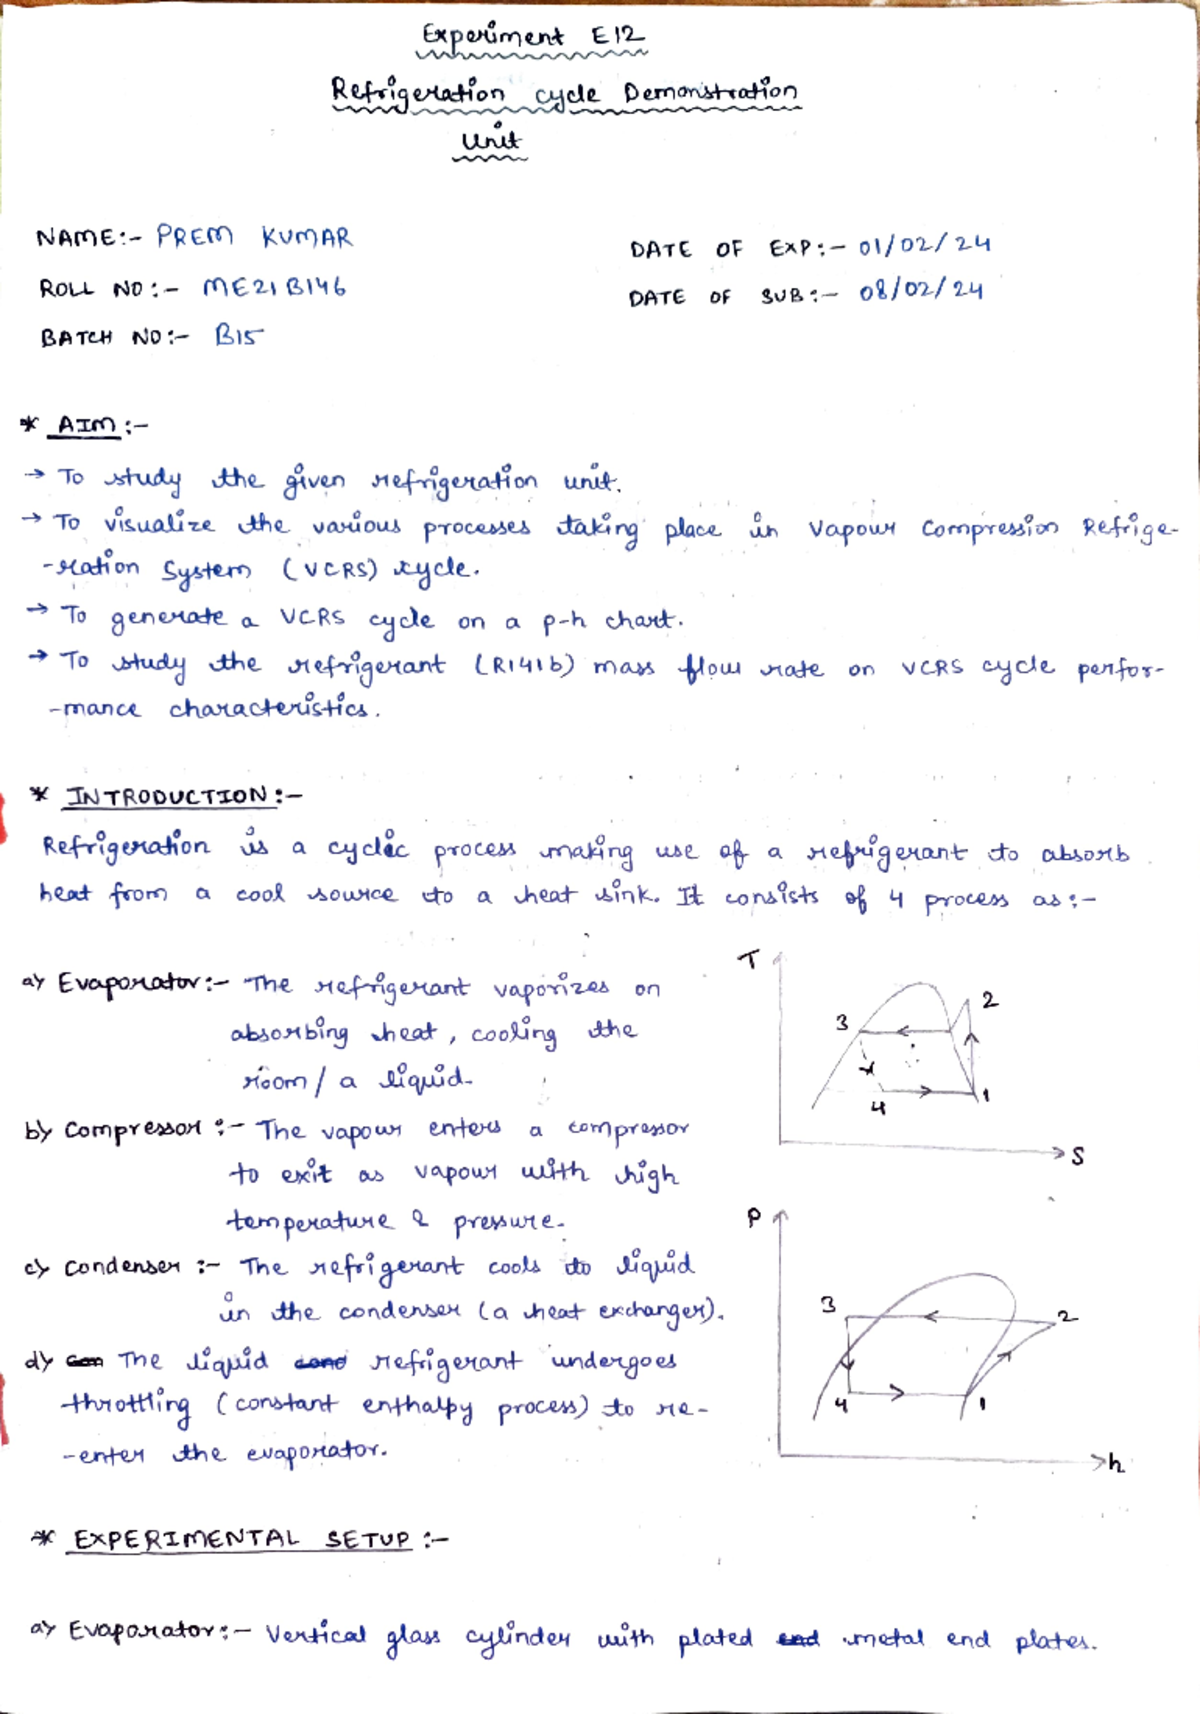 Experiment E12
Refrigeration cycle Demonstration
Unit
NAME:- PREM KUMAR
DATE OF EXP:- 01/02/24
ROLL NO:- ME21B146
DATE OF SUB:- 08/02/24
BATCH NO:- B15
* AIM:-
→ To study the given refrigeration unit.
→ To visualize the various processes taking place in Vapour Compression Refrige-
-ration System (VCRS) cycle.
→ To generate a VCRS cycle on a p-h chart.
→ To study the refrigerant (R141b) mass flow rate on VCRS cycle perfor-
-mance characteristics.
* INTRODUCTION:-
Refrigeration is a cyclic process making use of a refrigerant to absorb
heat from a cool source to a heat sink. It consists of 4 process as:-
a) Evaporator:- The refrigerant vaporizes on
absorbing heat, cooling the
room/ a liquid.
b) Compressor:- The vapour enters a compressor
to exit as vapour with high
temperature & pressure.
c) Condenser:- The refrigerant cools to liquid
in the condenser (a heat exchanger).
d) The liquid refrigerant undergoes
throttling (constant enthalpy process) to re-
-enter the evaporator.
T
2
3
4
1
S
P
3
2
4
1
h
* EXPERIMENTAL SETUP:-
a) Evaporator:- Vertical glass cylinder with plated end metal end plates.